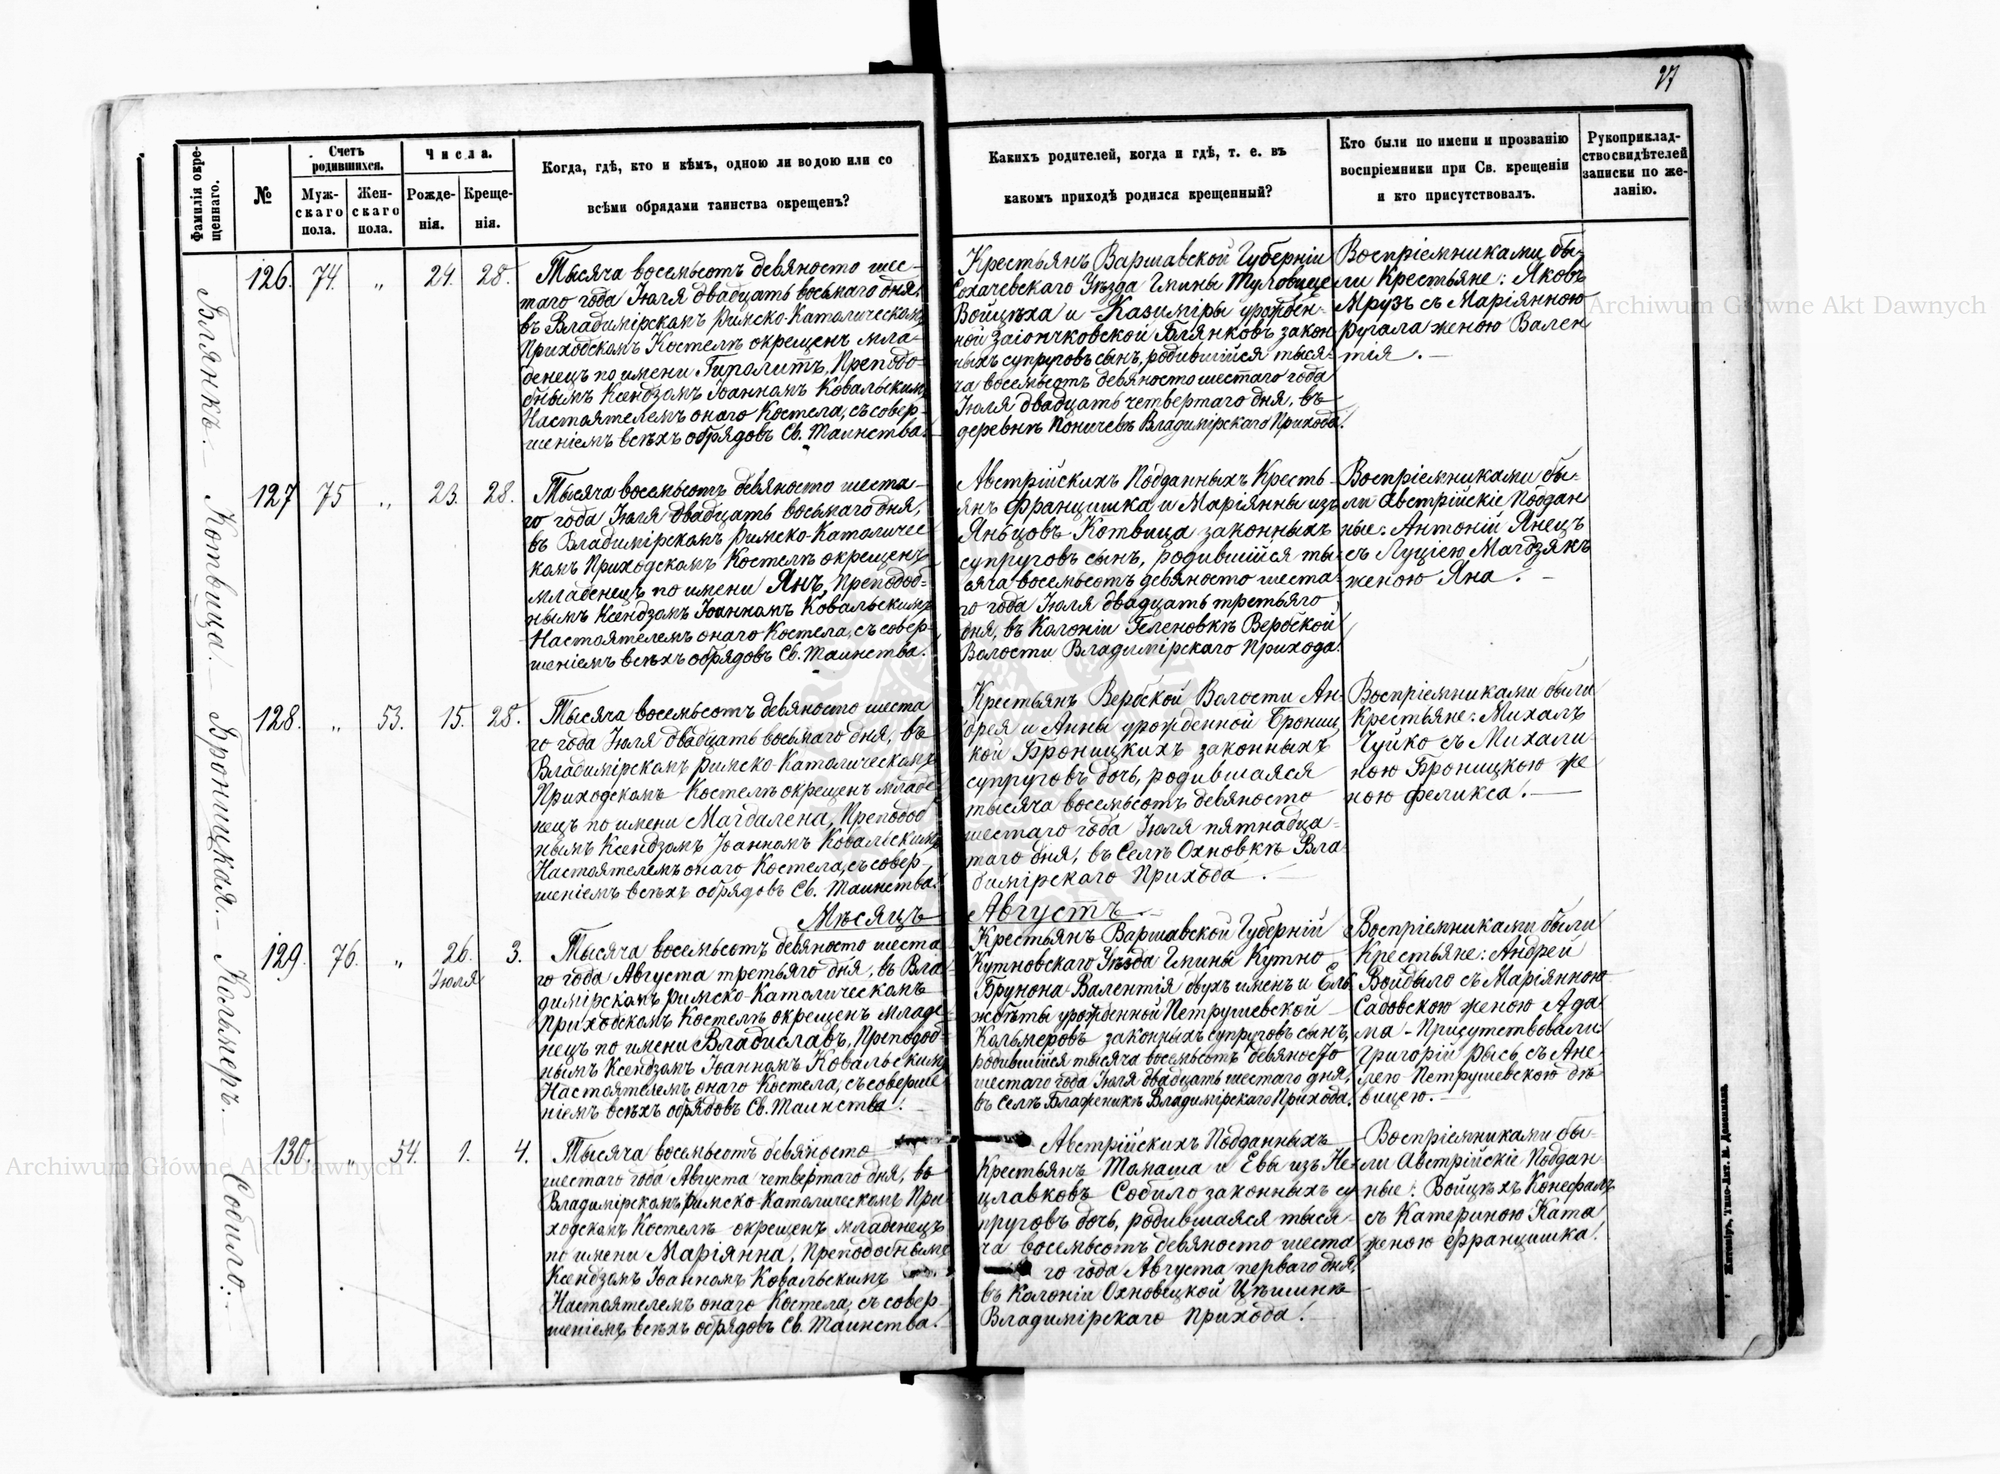 27
Фамилія окре-
щеннаго.
№
Счетъ
родившихся.
Муж-
скаго
пола.
Жен-
скаго
пола.
Числа.
Рожде-
нія.
Креще-
нія.
Когда, гдѣ, кто и кѣмъ, одною ли водою или со
всѣми обрядами таинства окрещенъ?
Какихъ родителей, когда и гдѣ, т. е. въ
какомъ приходѣ родился крещенный?
Кто были по имени и прозванію
воспріемники при Св. крещеніи
и кто присутствовалъ.
Рукоприклад-
ство свидѣтелей
записки по же-
ланію.
Блянкъ.
126. 74. „ 24. 28.
Тысяча восемьсотъ девяносто шес-
таго года Іюля двадцать восьмаго дня,
въ Владимірскомъ Римско-Католическомъ
Приходскомъ Костелѣ окрещенъ мла-
денецъ по имени Гиполитъ, Преподо-
бнымъ Ксендзомъ Іоанномъ Ковальскимъ
Настоятелемъ онаго Костела, съ совер-
шеніемъ всѣхъ обрядовъ Св. Таинства.
Крестьянъ Варшавской Губерніи
Сохачевскаго Уѣзда Гмины Туловице
Войцѣха и Казиміры урожден-
ной Заіончковской Блянковъ закон-
ныхъ супруговъ сынъ, родившійся тыся-
ча восемьсотъ девяносто шестаго года
Іюля двадцать четвертаго дня, въ
деревнѣ Поничевѣ Владимірскаго Прихода.
Воспріемниками бы-
ли Крестьяне: Яковъ
Мрузъ съ Маріянною
Ругала женою Вален
тія.
Котвица.
127 75 „ 23. 28.
Тысяча восемьсотъ девяносто шеста-
го года Іюля двадцать восьмаго дня,
въ Владимірскомъ Римско-Католичес
комъ Приходскомъ Костелѣ окрещенъ
младенецъ по имени Янъ, Преподоб-
нымъ Ксендзомъ Іоанномъ Ковальскимъ
Настоятелемъ онаго Костела, съ совер-
шеніемъ всѣхъ обрядовъ Св. Таинства.
Австрійскихъ Подданныхъ Кресть-
янъ Францишка и Маріянны изъ
Яньцовъ Котвица законныхъ
супруговъ сынъ, родившійся ты-
сяча восемьсотъ девяносто шеста-
го года Іюля двадцать третьяго
дня, въ Колоніи Геленовкѣ Вербской
Волости Владимірскаго Прихода.
Воспріемниками бы-
ли Австрійскіе Поддан
ные: Антоній Янецъ
съ Луціею Магдзякъ
женою Яна.
Броницкая.
128. „ 53. 15. 28.
Тысяча восемьсотъ девяносто шеста
го года Іюля двадцать восьмаго дня, въ
Владимірскомъ Римско-Католическомъ
Приходскомъ Костелѣ окрещенъ младе
нецъ по имени Магдалена, Преподоб
нымъ Ксендзомъ Іоанномъ Ковальскимъ
Настоятелемъ онаго Костела, съ совер-
шеніемъ всѣхъ обрядовъ Св. Таинства.
Крестьянъ Вербской Волости Ан-
дрея и Анны урожденной Брониц
кой Броницкихъ законныхъ
супруговъ дочь, родившаяся
тысяча восемьсотъ девяносто
шестаго года Іюля пятнадца-
таго дня, въ Селѣ Охновкѣ Вла
димірскаго Прихода.
Воспріемниками были
Крестьяне: Михалъ
Чуйко съ Михали-
ною Броницкою же
ною Феликса.
Мѣсяцъ Августъ
Кольмеръ.
129. 76. „ 26. Іюля 3.
Тысяча восемьсотъ девяносто шеста
го года Августа третьяго дня, въ Вла
димірскомъ Римско-Католическомъ
Приходскомъ Костелѣ окрещенъ младе-
нецъ по имени Владиславъ, Преподоб
нымъ Ксендзомъ Іоанномъ Ковальскимъ
Настоятелемъ онаго Костела, съ соверше
ніемъ всѣхъ обрядовъ Св. Таинства.
Крестьянъ Варшавской Губерній
Кутновскаго Уѣзда Гмины Кутно
Брунона-Валентія двухъ именъ и Ель
жбѣты урожденной Петрушевской
Кольмеровъ законныхъ супруговъ сынъ,
родившійся тысяча восемьсотъ девяносто
шестаго года Іюля двадцать шестаго дня,
въ Селѣ Блаженикѣ Владимірскаго Прихода.
Воспріемниками были
Крестьяне: Андрей
Войдыло съ Маріянною
Садовскою женою Ада
ма - Присутствовали
Григорій Рысь съ Ане-
лею Петрушевскою дѣ
вицею.
Собило.
130. „ 54. 1. 4.
Тысяча восемьсотъ девяносто
шестаго года Августа четвертаго дня, въ
Владимірскомъ Римско-Католическомъ При
ходскомъ Костелѣ окрещенъ младенецъ
по имени Маріянна, Преподобнымъ
Ксендзомъ Іоанномъ Ковальскимъ
Настоятелемъ онаго Костела, съ совер-
шеніемъ всѣхъ обрядовъ Св. Таинства.
Австрійскихъ Подданныхъ
Крестьянъ Томаша и Евы изъ Не-
цлавковъ Собило законныхъ су
пруговъ дочь, родившаяся тыся-
ча восемьсотъ девяносто шеста
го года Августа перваго дня,
въ Колоніи Охновецкой Цѣшинѣ
Владимірскаго Прихода.
Воспріемниками бы-
ли Австрійскіе Поддан
ные: Войцѣхъ Конефалъ
съ Катериною Ката
женою Францишка.
Archiwum Główne Akt Dawnych
Archiwum Główne Akt Dawnych